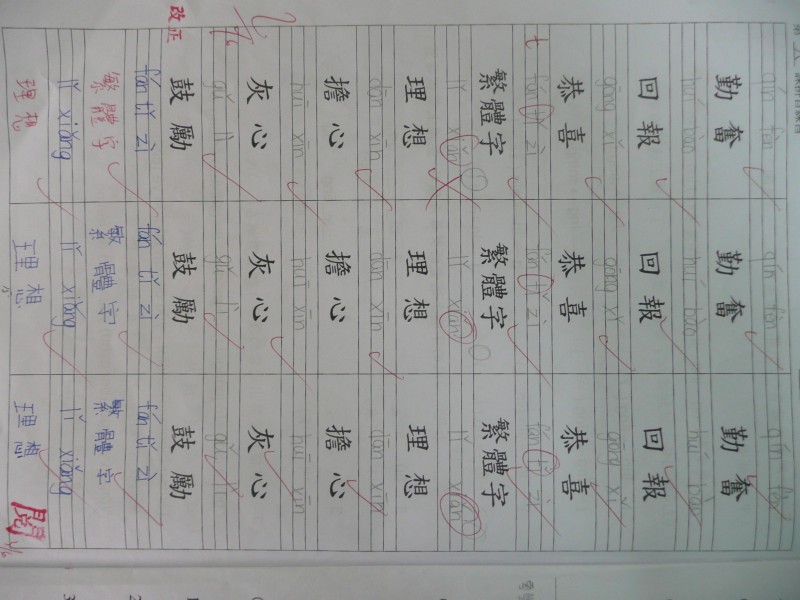 qín fèn qín fèn qín fèn
勤奮 勤奮 勤奮
huí bào huí bào huí bào
回報 回報 回報
gōng xǐ gōng xǐ gōng xǐ
恭喜 恭喜 恭喜
t
fán zì fán zì fán zì
繁體字 繁體字 繁體字
lǐ xiǎn lǐ xiǎn lǐ xiǎn
理想 理想 理想
dān xīn dān xīn dān xīn
擔心 擔心 擔心
huī xīn huī xīn huī xīn
灰心 灰心 灰心
gǔ lì gǔ lì gǔ lì
鼓勵 鼓勵 鼓勵
改正
fán tǐ zì fán tǐ zì fán tǐ zì
繁體字 繁體字 繁體字
lǐ xiǎng lǐ xiǎng lǐ xiǎng
理想 理想 理想
閱